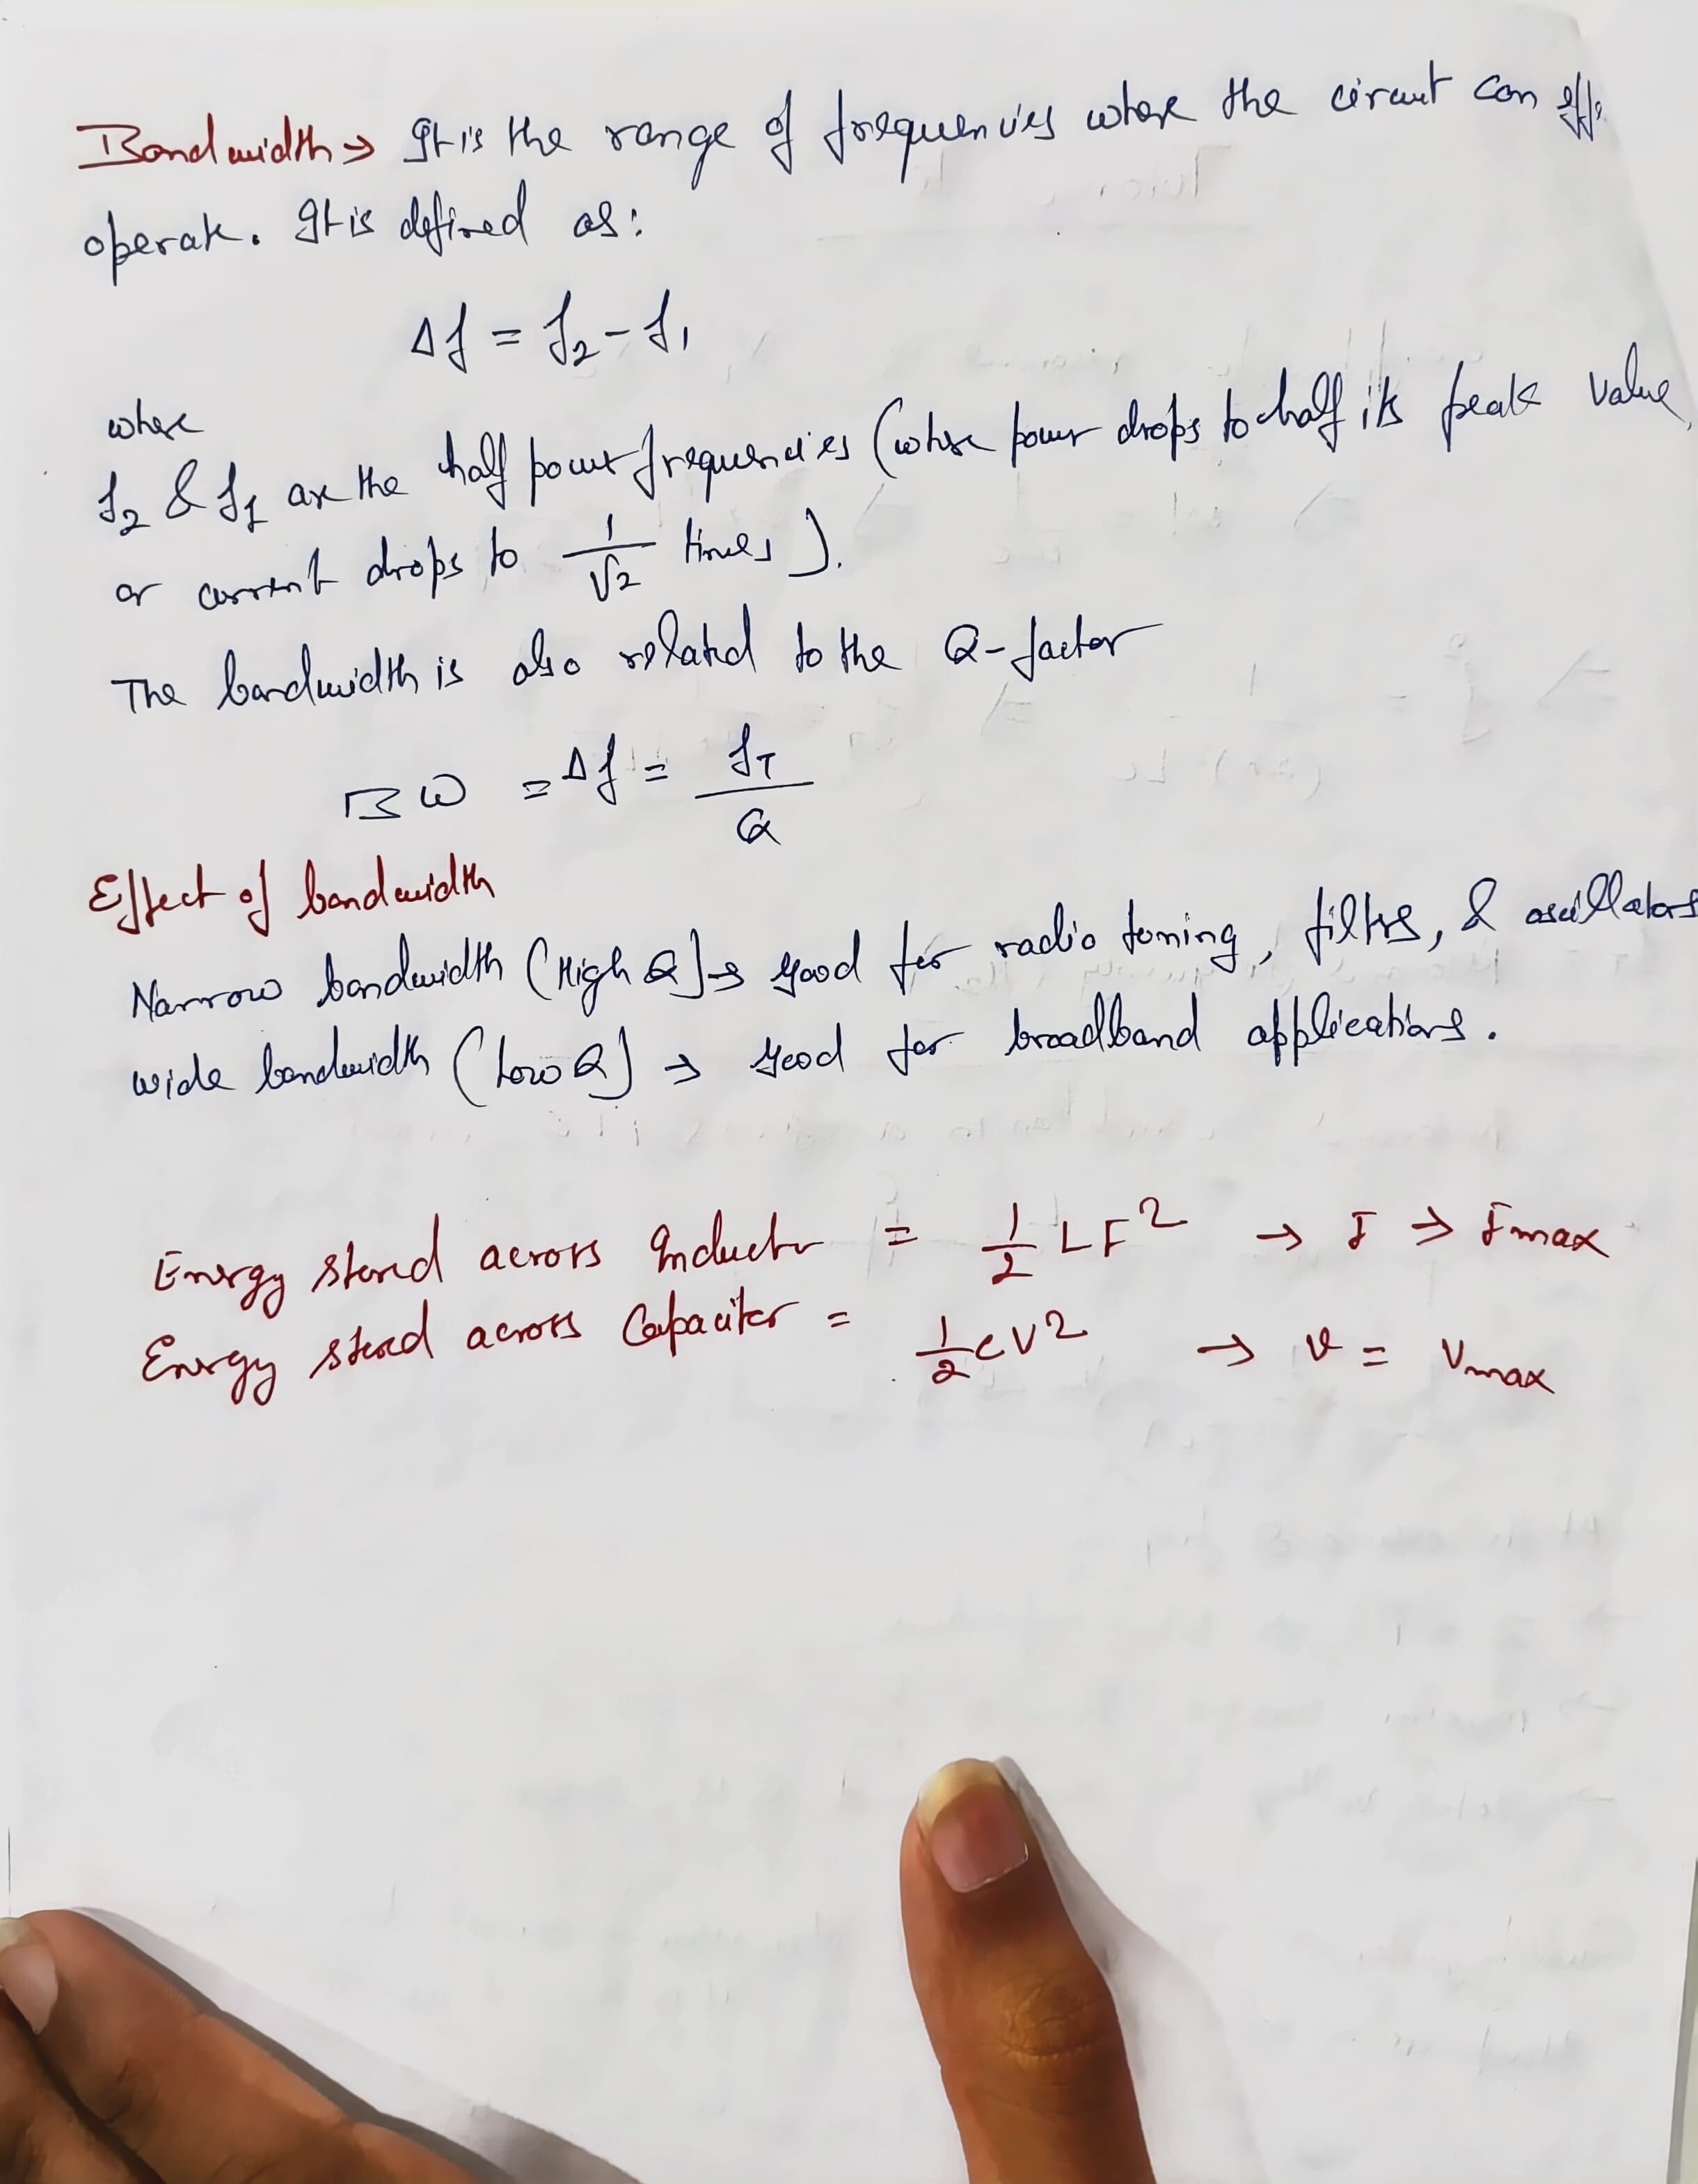 Bandwidth → It is the range of frequencies where the circuit can effi
operate. It is defined as:
Δf = f₂ - f₁
where
f₂ & f₁ are the half power frequencies (where power drops to half its peak value,
or current drops to 1/√2 times).
The bandwidth is also related to the Q-factor
BW = Δf = fr/Q
Effect of bandwidth
Narrow bandwidth (High Q) → good for radio tuning, filters, & oscillators
wide bandwidth (Low Q) → good for broadband applications.
Energy stored across Inductor = 1/2 LI² → I → Imax
Energy stored across Capacitor = 1/2 CV² → V = Vmax